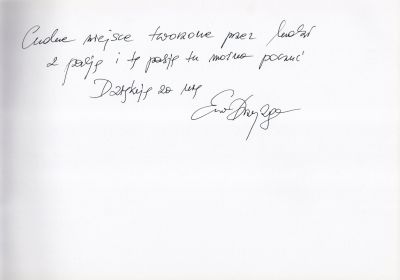 Cudne miejsce tworzone przez ludzi
z pasją i tę pasję tu można poczuć
Dziękuję za
Ewa